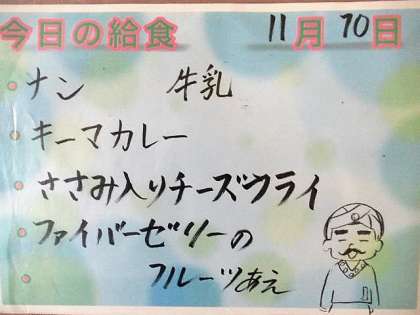 今日の給食 11月10日
・ナン 牛乳
・キーマカレー
・ささみ入りチーズフライ
・ファイバーゼリーの
フルーツあえ